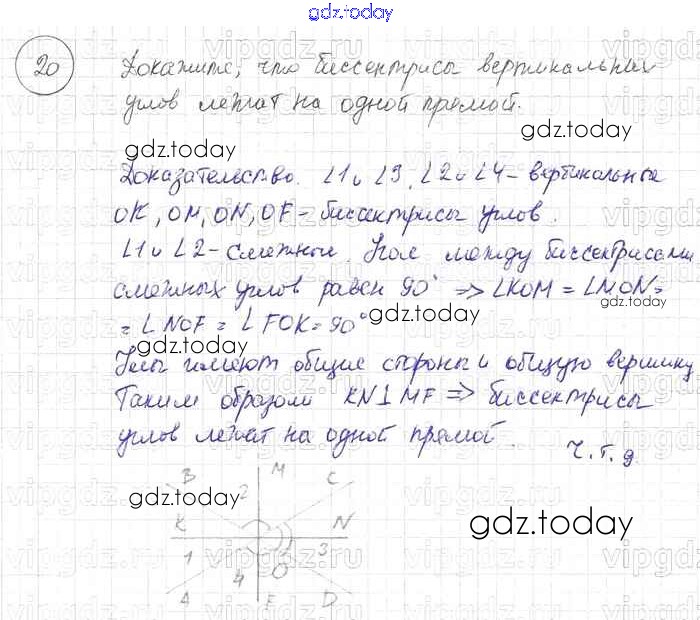 gdz.today
20 Докажите, что биссектрисы вертикальных
углов лежат на одной прямой.
gdz.today
gdz.today
Доказательство. ∠1 и ∠3, ∠2 и ∠4 - вертикальные
OK, OM, ON, OF - биссектрисы углов.
∠1 и ∠2 - смежные. Угол между биссектрисами
смежных углов равен 90° => ∠KOM = ∠MON =
= ∠NOF = ∠FOK = 90°
gdz.today
gdz.today
gdz.today
Углы имеют общие стороны и общую вершину
Таким образом KN⊥MF => биссектрисы
углов лежат на одной прямой.
ч.т.д.
B 2 M C
gdz.today
K N
gdz.today
1 3
4 O
A F D